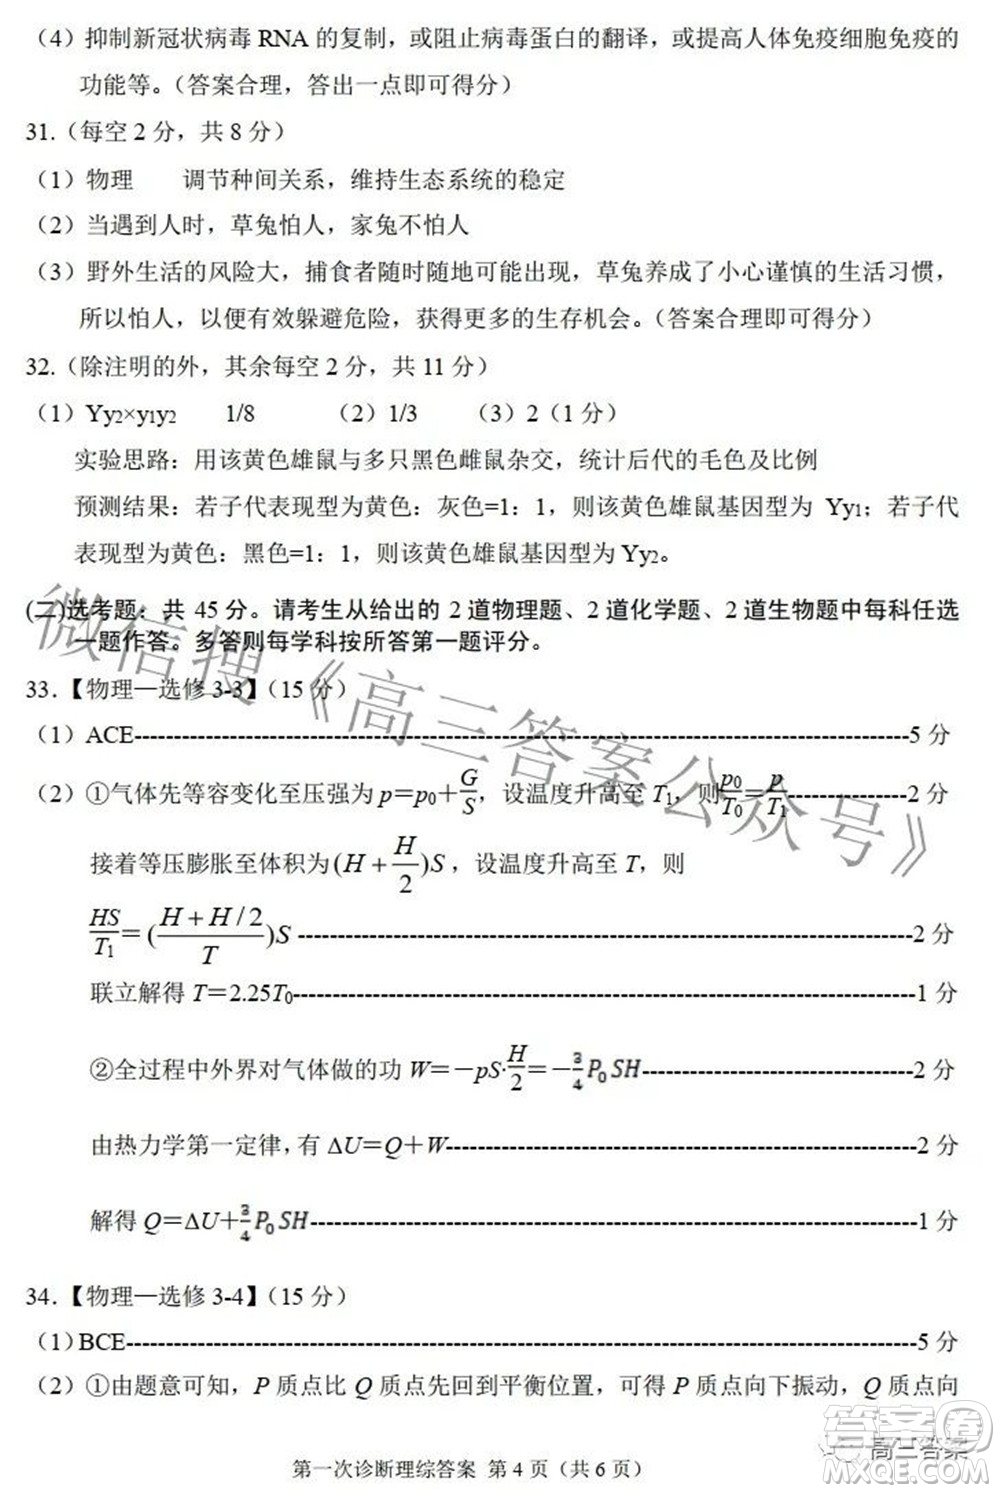 （4）抑制新冠状病毒 RNA 的复制，或阻止病毒蛋白的翻译，或提高人体免疫细胞免疫的
功能等。（答案合理，答出一点即可得分）
31.（每空 2 分，共 8 分）
（1）物理 调节种间关系，维持生态系统的稳定
（2）当遇到人时，草兔怕人，家兔不怕人
（3）野外生活的风险大，捕食者随时随地可能出现，草兔养成了小心谨慎的生活习惯，
所以怕人，以便有效躲避危险，获得更多的生存机会。（答案合理即可得分）
32.（除注明的外，其余每空 2 分，共 11 分）
（1）Yy₂×y₁y₂ 1/8 （2）1/3 （3）2（1 分）
实验思路：用该黄色雄鼠与多只黑色雌鼠杂交，统计后代的毛色及比例
预测结果：若子代表现型为黄色：灰色=1：1，则该黄色雄鼠基因型为 Yy₁；若子代
表现型为黄色：黑色=1：1，则该黄色雄鼠基因型为 Yy₂。
(二)选考题：共 45 分。请考生从给出的 2 道物理题、2 道化学题、2 道生物题中每科任选
一题作答。多答则每学科按所答第一题评分。
33.【物理—选修 3-3】（15 分）
（1）ACE------5 分
（2）①气体先等容变化至压强为 p＝p₀＋G/S，设温度升高至 T₁，则 p₀/T₀＝p/T₁------2 分
接着等压膨胀至体积为 (H＋H/2)S，设温度升高至 T，则
HS/T₁＝((H＋H/2)/T)S------2 分
联立解得 T＝2.25T₀------1 分
②全过程中外界对气体做的功 W＝－pS·H/2＝－3/4 P₀SH------2 分
由热力学第一定律，有 ΔU＝Q＋W------2 分
解得 Q＝ΔU＋3/4 P₀SH------1 分
34.【物理—选修 3-4】（15 分）
（1）BCE------5 分
（2）①由题意可知，P 质点比 Q 质点先回到平衡位置，可得 P 质点向下振动，Q 质点向
第一次诊断理综答案 第 4 页（共 6 页）
微信搜《高三答案公众号》
高三答案
答案圈
MXQE.COM